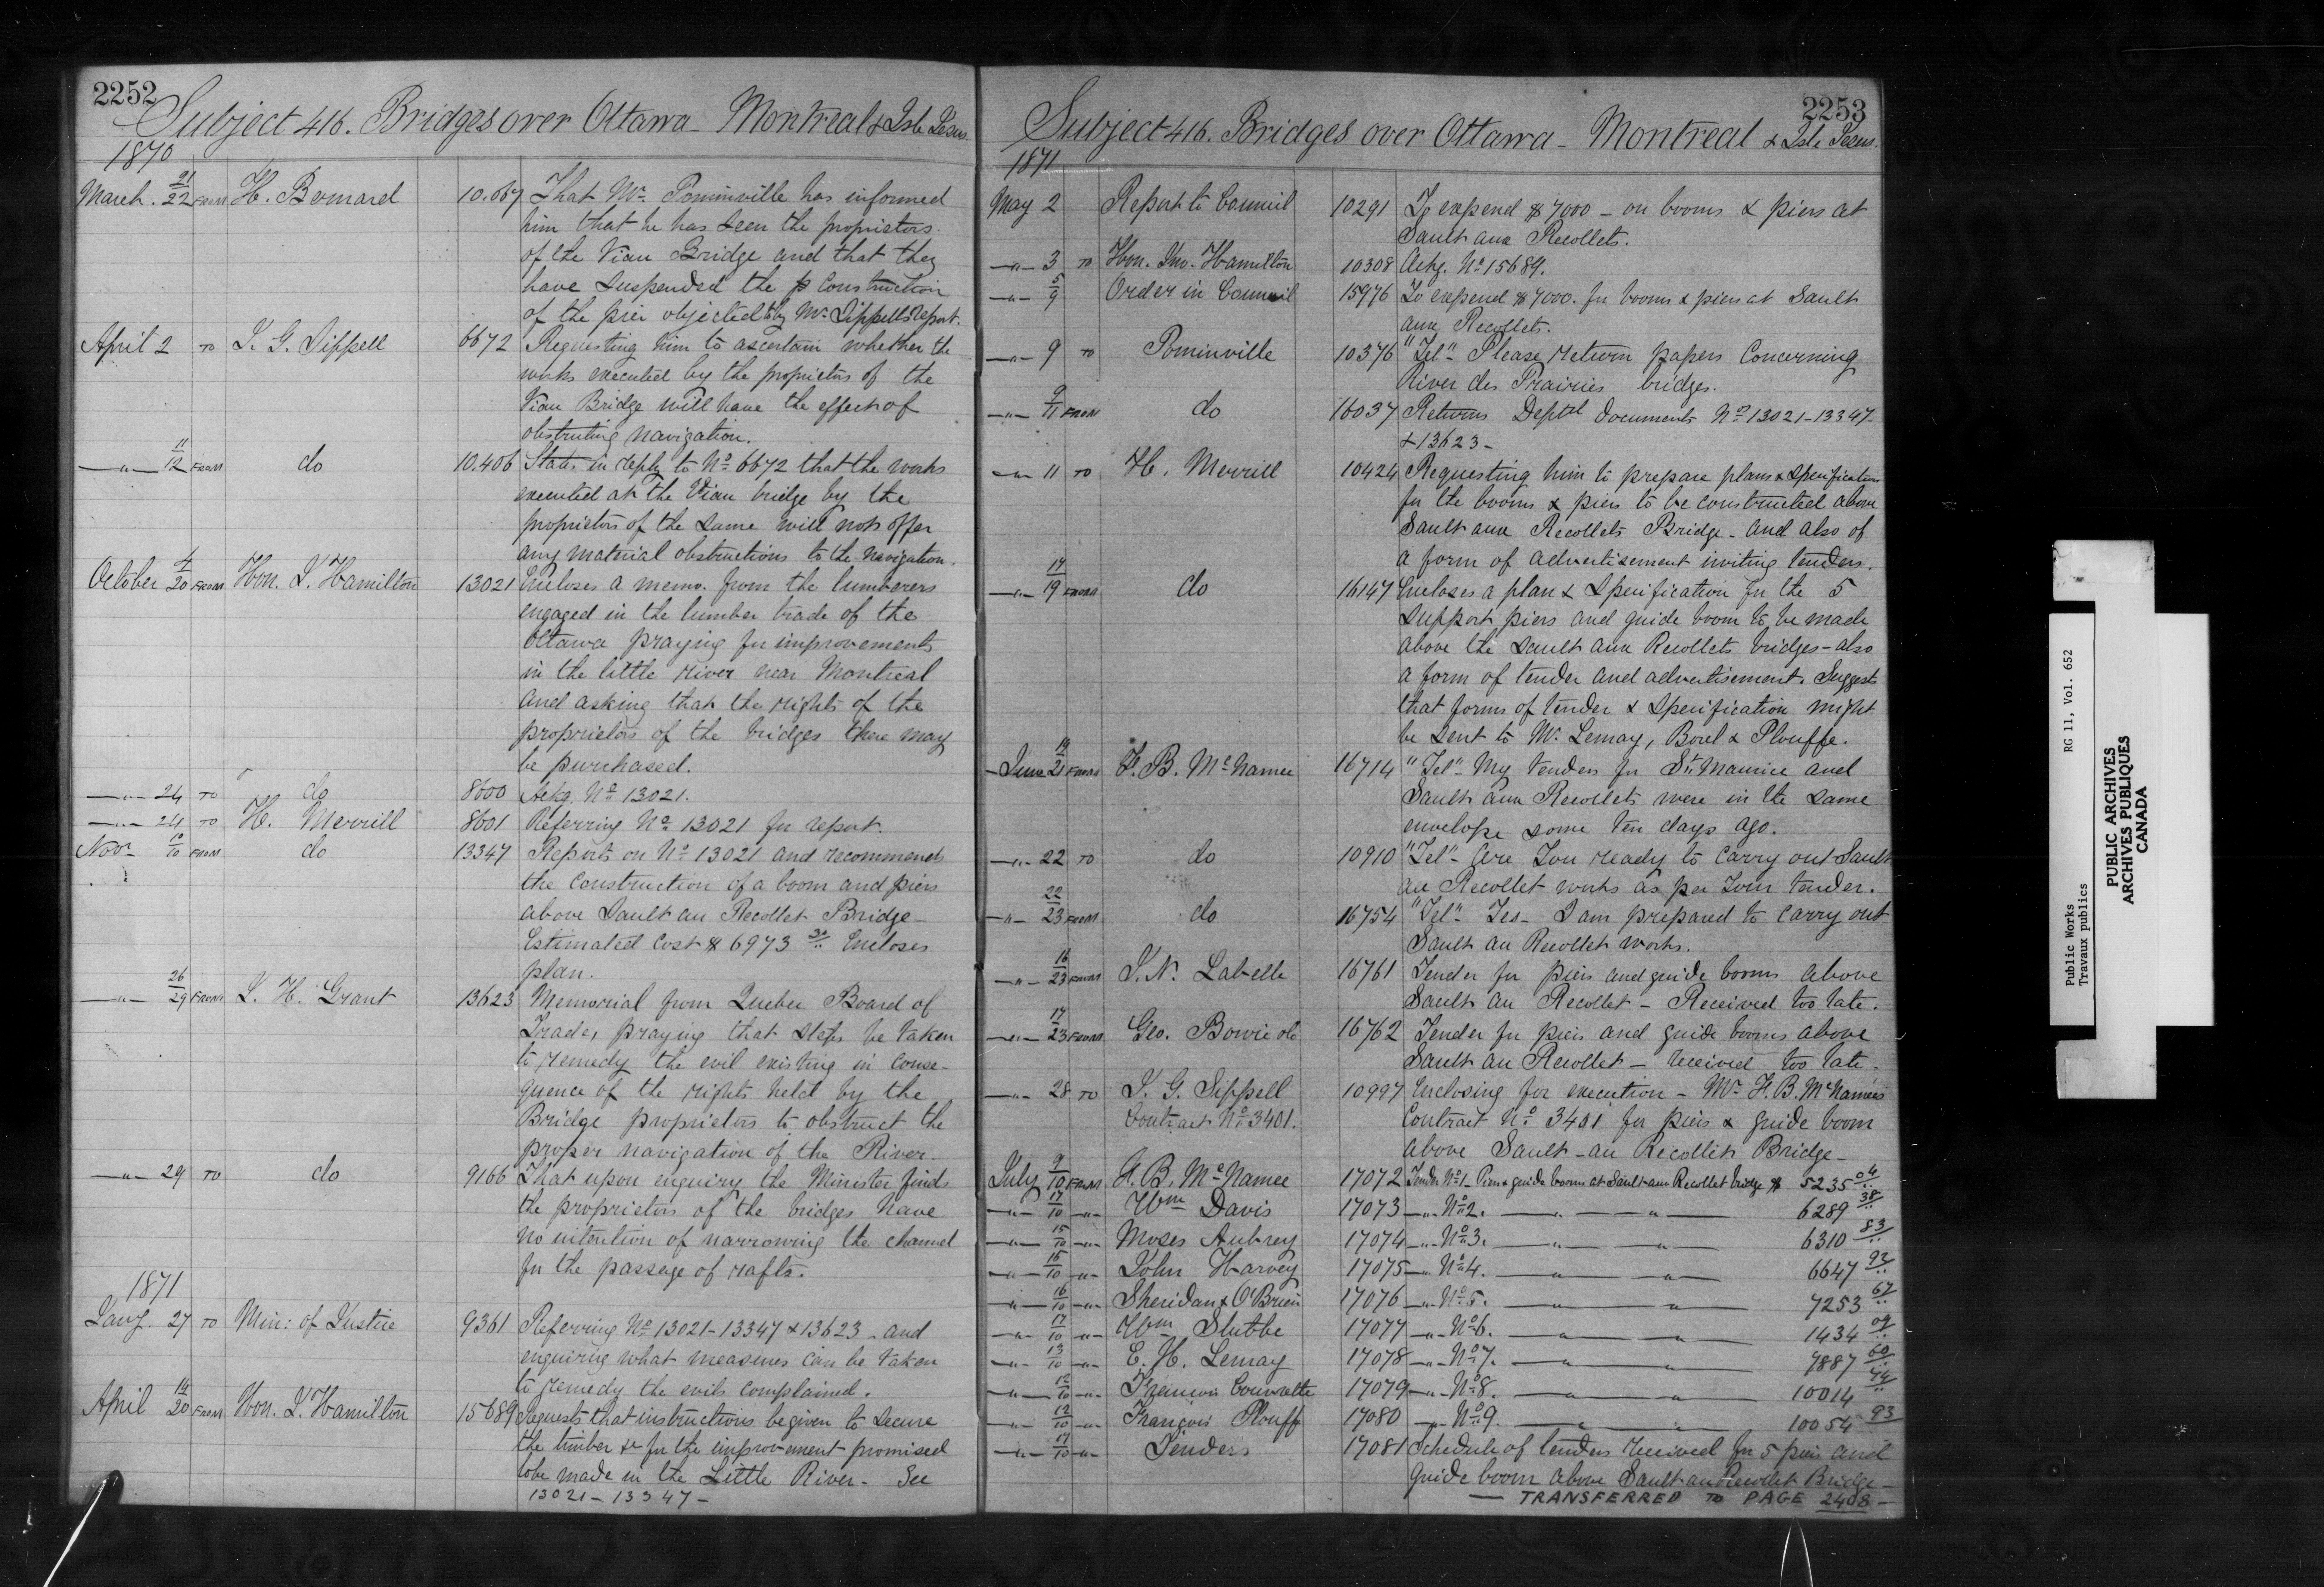 2252
Subject 416. Bridges over Ottawa - Montreal & Isle Jesus.
1870
March. 21/22 FROM H. Bernard 10.067 That Mr. Pominville has informed
him that he has seen the proprietors
of the Vian Bridge and that they
have suspended the construction
of the pier objected to by Mr Sippells report.
April 2 TO J. G. Sippell 6672 Requesting him to ascertain whether the
works executed by the proprietors of the
Vian Bridge will have the effect of
obstructing navigation.
—"— 11/12 FROM do 10.406 States in reply to No 6672 that the works
executed at the Vian bridge by the
proprietors of the same will not offer
any material obstructions to the navigation.
October 4/20 FROM Hon. J. Hamilton 13021 Encloses a memo. from the lumberers
engaged in the lumber trade of the
Ottawa praying for improvements
in the little river near Montreal
and asking that the rights of the
proprietors of the bridges there may
be purchased.
—"— 24 TO do 8600 Ackg. No 13021.
—"— 24 TO H. Merrill 8601 Referring No 13021 for report.
Novr 10/10 FROM do 13347 Reports on No 13021 and recommends
the construction of a boom and piers
above Sault au Recollet Bridge -
Estimated cost $6973 Encloses
plan.
—"— 26/29 FROM J. H. Grant 13623 Memorial from Quebec Board of
Trade, praying that steps be taken
to remedy the evil existing in conse-
quence of the rights held by the
Bridge proprietors to obstruct the
proper navigation of the River -
—"— 29 TO do 9166 That upon enquiry the Minister finds
the proprietors of the bridges have
no intention of narrowing the channel
for the passage of rafts.
1871
Jany. 27 TO Min: of Justice 9361 Referring No 13021-13347 & 13623 - and
enquiring what measures can be taken
to remedy the evils complained.
April 14/20 FROM Hon. J. Hamilton 15689 Requests that instructions be given to secure
the timber &c for the improvement promised
to be made in the Little River - See
13021 - 13347 -
2253
Subject 416. Bridges over Ottawa - Montreal & Isle Jesus.
1871
May 2 Report to Council 10291 To expend $7000 - on booms & piers at
Sault aux Recollets.
—"— 3 TO Hon. Jno. Hamilton 10308 Ackg. No 15689.
—"— 5/9 Order in Council 15976 To expend $7000. for booms & piers at Sault
aux Recollets.
—"— 9 TO Pominville 10376 "Tel" - Please return papers concerning
River des Prairies bridges.
—"— 9/11 FROM do 16037 Returns Deptal documents No 13021-13347-
& 13623 -
—"— 11 TO H. Merrill 10424 Requesting him to prepare plans & specification
for the booms & piers to be constructed above
Sault aux Recollets Bridge - and also of
a form of advertisement inviting tenders.
—"— 17/19 FROM do 16147 Encloses a plan & specification for the 5
support piers and guide boom to be made
above the Sault aux Recollets bridges - also
a form of tender and advertisement. Suggests
that forms of tender & specification might
be sent to Mr. Lemay, Bowl & Plouffe.
June 19/21 FROM F. B. McNamee 16714 "Tel" - My tenders for St Maurice and
Sault aux Recollets were in the same
envelope some ten days ago.
—"— 22 TO do 10910 "Tel" - Are You ready to carry out Sault
au Recollet works as per Your tender.
—"— 22/23 FROM do 16754 "Tel" - Yes - I am prepared to carry out
Sault au Recollet works.
—"— 16/23 FROM J. N. Labelle 16761 Tender for piers and guide booms above
Sault au Recollet - Received too late.
—"— 17/23 FROM Geo. Bowie 16762 Tender for piers and guide booms above
Sault au Recollet - received too late -
—"— 28 TO J. G. Sippell 10997 Enclosing for execution - Mr F. B. McNamee's
Contract No 3401. Contract No 3401 for piers & guide boom
above Sault-au Recollets Bridge -
July 9/10 FROM F. B. McNamee 17072 Tender No 1 - Piers & guide booms at Sault aux Recollet bridge $ 5235 04
—"— 17/10 —"— Wm Davis 17073 —"— No 2. —"—"— 6289 38
—"— 15/10 —"— Moses Aubrey 17074 —"— No 3. —"—"— 6310 83
—"— 15/10 —"— John Harvey 17075 —"— No 4. —"—"— 6647 92
—"— 16/10 —"— Sheridan & O'Brien 17076 —"— No 5. —"—"— 7253 67
—"— 17/10 —"— Wm Stubbe 17077 —"— No 6. —"—"— 1434 09
—"— 13/10 —"— E. H. Lemay 17078 —"— No 7. —"—"— 9887 60
—"— 12/10 —"— Francois Couvrette 17079 —"— No 8. —"—"— 10014 44
—"— 12/10 —"— François Plouff 17080 —"— No 9. —"—"— 10054 93
—"— 17/10 —"— Tenders 17081 Schedule of tenders received for 5 piers and
guide boom above Sault au Recollet Bridge -
— TRANSFERRED TO PAGE 2408 —
Public Works RG 11, Vol. 652
Travaux publics
PUBLIC ARCHIVES
ARCHIVES PUBLIQUES
CANADA